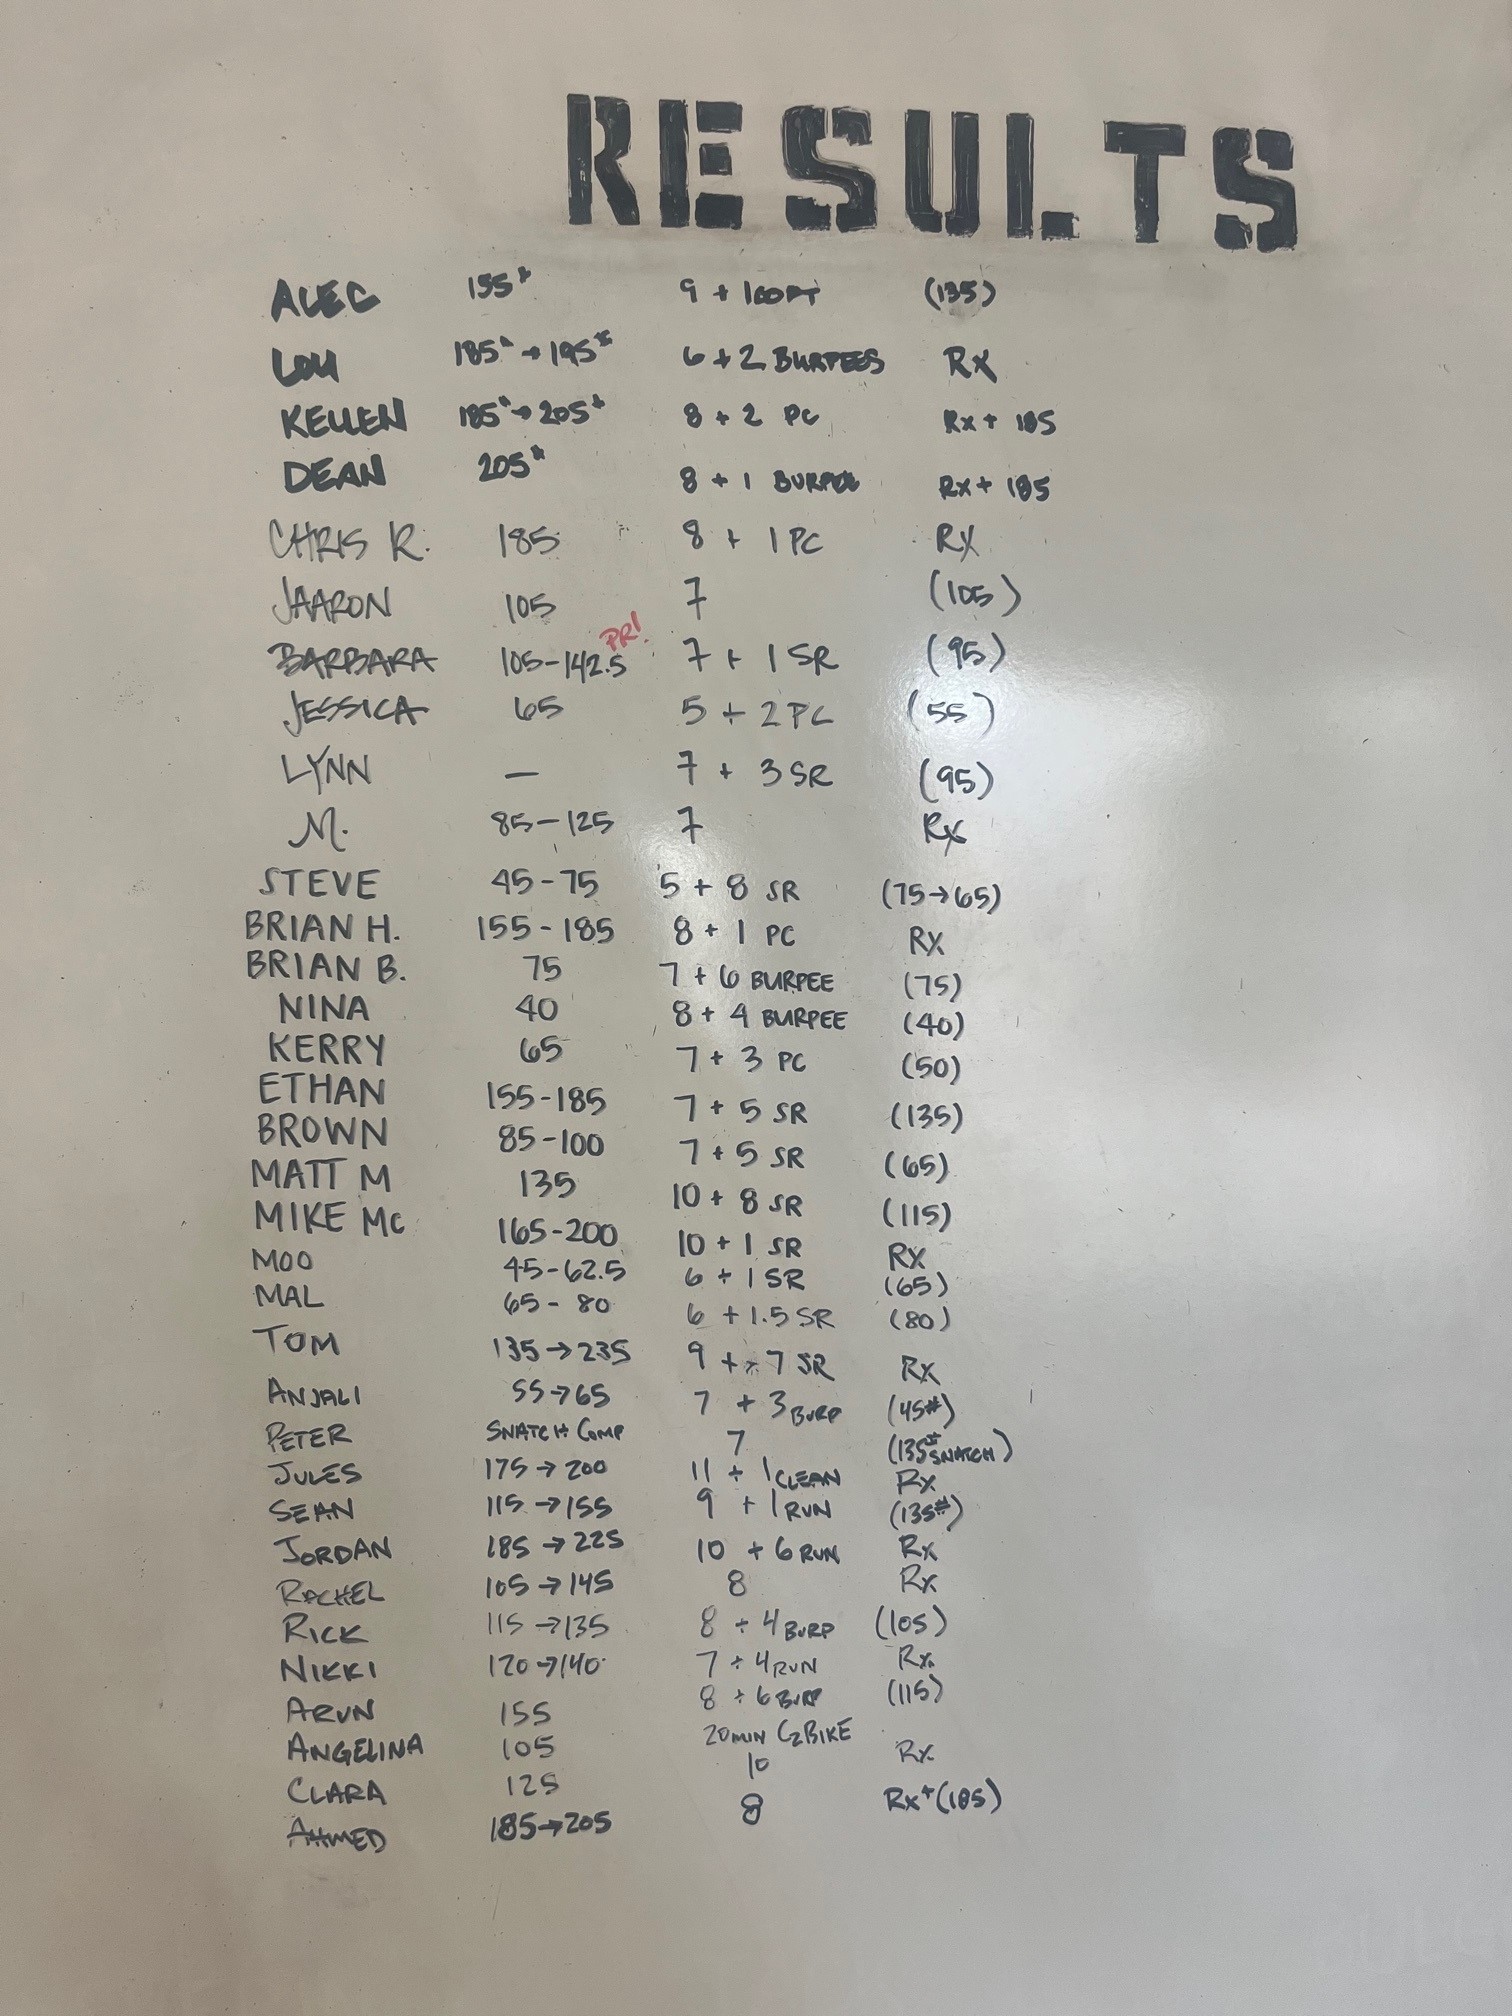 RESULTS
ALEC 155# 9 + 100FT (135)
LOU 185# → 195# 6 + 2 BURPEES Rx
KELLEN 185# → 205# 8 + 2 PC Rx + 185
DEAN 205# 8 + 1 BURPEE Rx + 185
CHRIS R. 185 8 + 1 PC RX
JAARON 105 7 (105)
BARBARA 105-142.5 PR! 7 + 1 SR (95)
JESSICA 65 5 + 2 PC (55)
LYNN — 7 + 3 SR (95)
M. 85-125 7 Rx
STEVE 45-75 5 + 8 SR (75→65)
BRIAN H. 155-185 8 + 1 PC RX
BRIAN B. 75 7 + 6 BURPEE (75)
NINA 40 8 + 4 BURPEE (40)
KERRY 65 7 + 3 PC (50)
ETHAN 155-185 7 + 5 SR (135)
BROWN 85-100 7 + 5 SR (65)
MATT M 135 10 + 8 SR (115)
MIKE Mc 165-200 10 + 1 SR RX
MOO 45-62.5 6 + 1 SR (65)
MAL 65-80 6 + 1.5 SR (80)
TOM 135→235 9 + 7 SR RX
ANJALI 55→65 7 + 3 BURP (45#)
PETER SNATCH COMP 7 (135# SNATCH)
JULES 175→200 11 + 1 CLEAN Rx
SEAN 115→155 9 + 1 RUN (135#)
JORDAN 185→225 10 + 6 RUN Rx
RACHEL 105→145 8 Rx
RICK 115→135 8 + 4 BURP (105)
NIKKI 120→140 7 + 4 RUN Rx
ARUN 155 8 + 6 BURP (115)
ANGELINA 105 20 MIN C2 BIKE
CLARA 125 10 Rx
AHMED 185→205 8 Rx+(185)